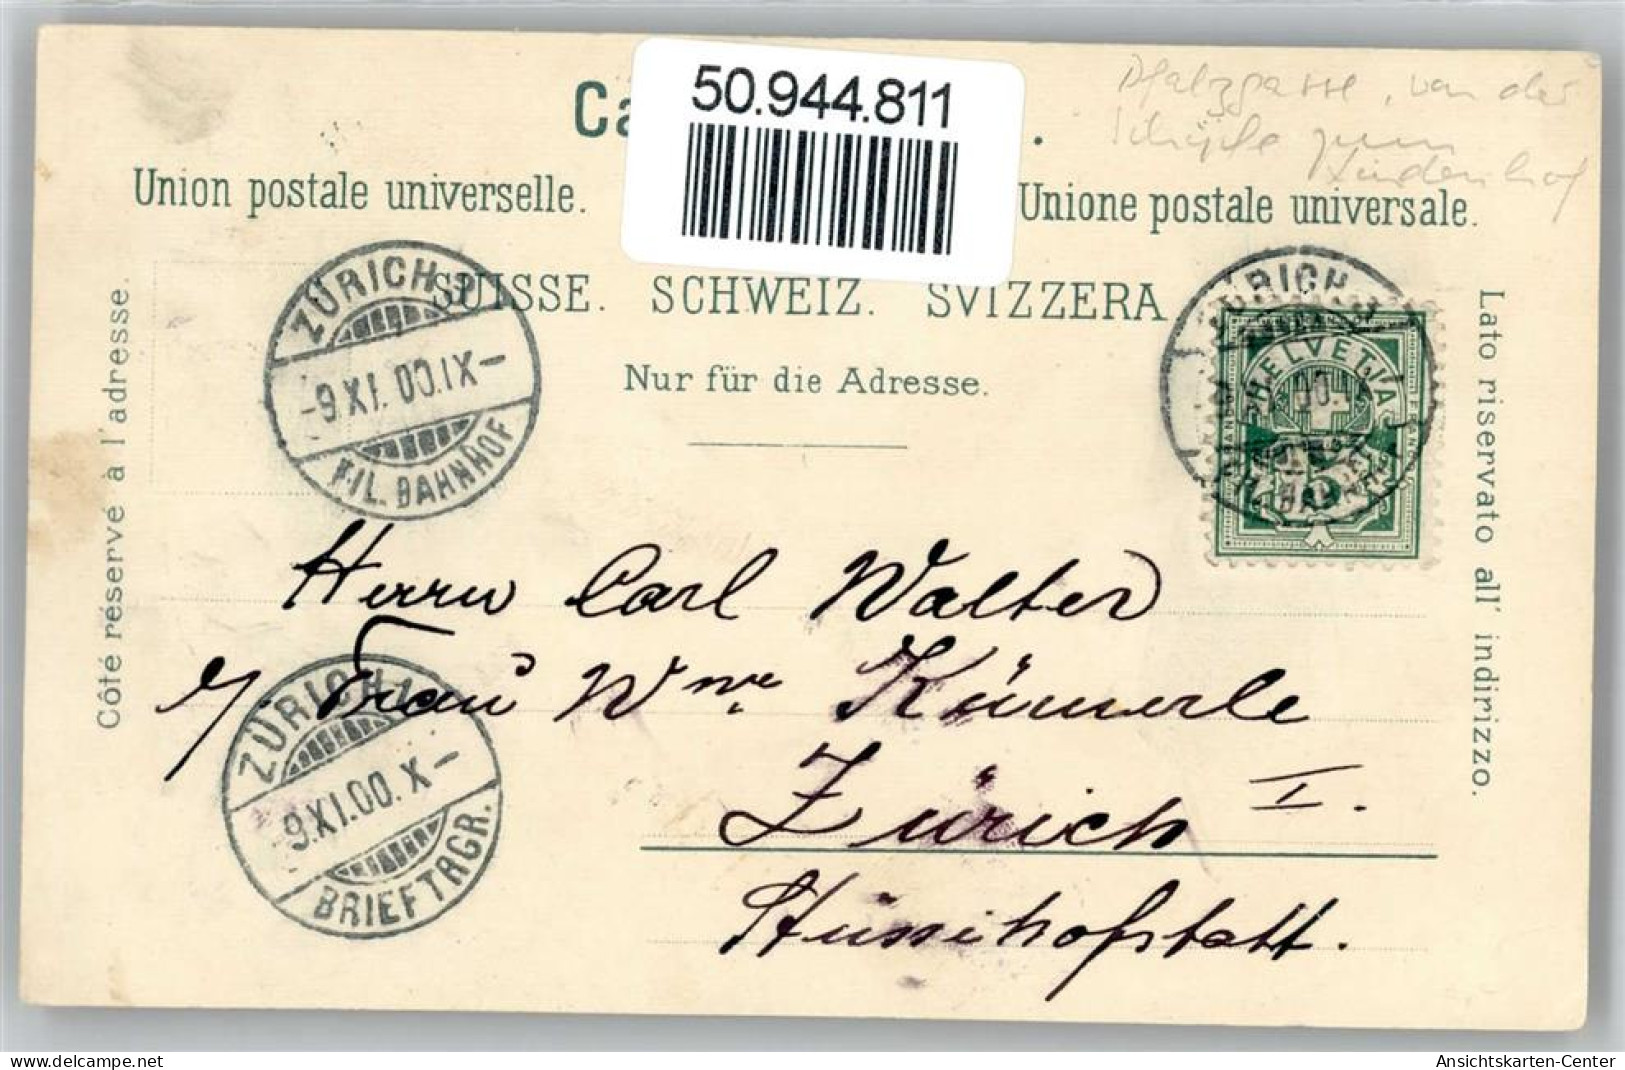 50.944.811
Ca
.
Pfalzgasse, von der
Schipfe zum
Lindenhof
Union postale universelle.
Unione postale universale.
SUISSE. SCHWEIZ. SVIZZERA
Nur für die Adresse.
Côté réservé à l'adresse.
Lato riservato all' indirizzo.
ZÜRICH 1
-9 XI. 00. IX-
FIL. BAHNHOF
ZÜRICH
00.
FIL. BAHNHOF
HELVETIA
FRANCO
5
Herrn Carl Walter
Frau Wwe Kümerle
Zürich I.
Stüssihofstatt.
ZÜRICH 1
-9 XI. 00. X-
BRIEFTRGR.
www.ansichtskarten-center.de
Ansichtskarten-Center